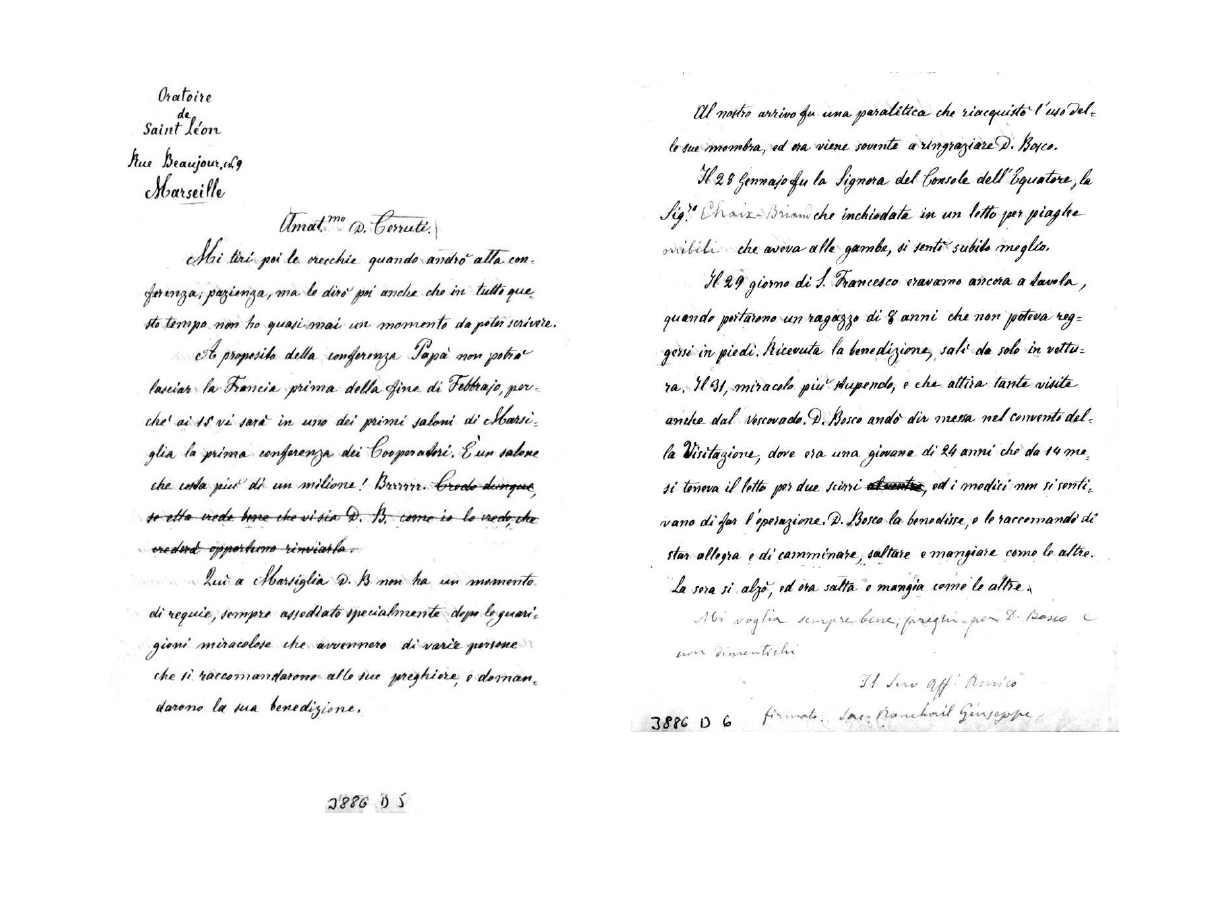 Oratoire
de
Saint Léon
Rue Beaujour, N. 9
Marseille
Amat.mo D. Cerruti.
Mi tiri poi le orecchie quando andrò alla con-
ferenza; pazienza, ma le dirò poi anche che in tutto que-
sto tempo non ho quasi mai un momento da poter scrivere.
A proposito della conferenza Papà non potrà
lasciar la Francia prima della fine di Febbrajo, per-
chè ai 15 vi sarà in uno dei primi saloni di Marsi-
glia la prima conferenza dei Cooperatori. È un salone
che costa più di un milione! Brrrrrr. Credo dunque,
se ella crede bene che vi sia D. B. come io lo credo, che
crederà opportuno rinviarla.
Qui a Marsiglia D. B non ha un momento
di requie, sempre assediato specialmente dopo le guari-
gioni miracolose che avvennero di varie persone
che si raccomandarono alle sue preghiere, e doman-
darono la sua benedizione.
3886 D 5
Al nostro arrivo fu una paralitica che riacquistò l'uso del-
le sue membra, ed ora viene sovente a ringraziare D. Bosco.
Il 28 Gennajo fu la Signora del Console dell'Equatore, la
Sig.ra Chaix-Briand che inchiodata in un letto per piaghe
orribili che aveva alle gambe, si sentì subito meglio.
Il 29 giorno di S. Francesco eravamo ancora a tavola,
quando portarono un ragazzo di 8 anni che non poteva reg-
gersi in piedi. Ricevuta la benedizione, salì da solo in vettu-
ra. Il 31, miracolo più stupendo, e che attira tante visite
anche dal Vescovado. D. Bosco andò dir messa nel convento del-
la Visitazione, dove era una giovane di 24 anni che da 14 me-
si teneva il letto per due scirri al ventre, ed i medici non si senti-
vano di far l'operazione. D. Bosco la benedisse, e le raccomandò di
star allegra e di camminare, saltare e mangiare come le altre.
La sera si alzò, ed ora salta e mangia come le altre.
Mi voglia sempre bene, preghi per D. Bosco e
non dimentichi
Il Suo Aff. Amico
firmato. Sac. Ronchail Giuseppe
3886 D 6